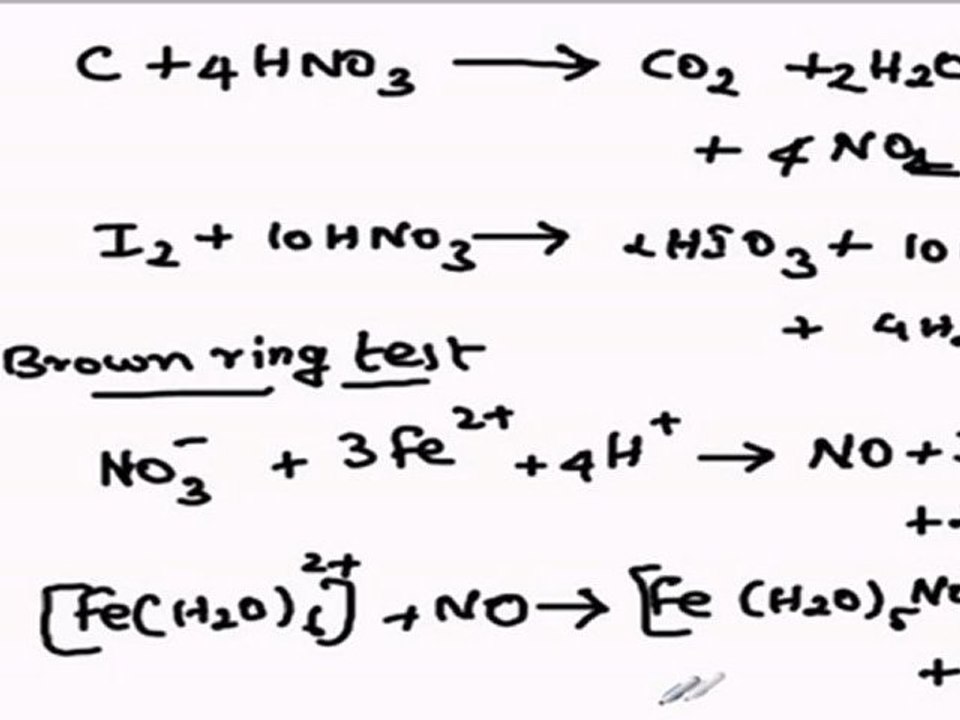 C + 4 HNO3 → CO2 + 2H2O
+ 4 NO2
I2 + 10 HNO3 → 2HSO3 + 10
+ 4H
Brown ring test
NO3⁻ + 3 Fe²⁺ + 4H⁺ → NO +
+
[Fe(H2O)6]²⁺ + NO → [Fe (H2O)5 NO
+